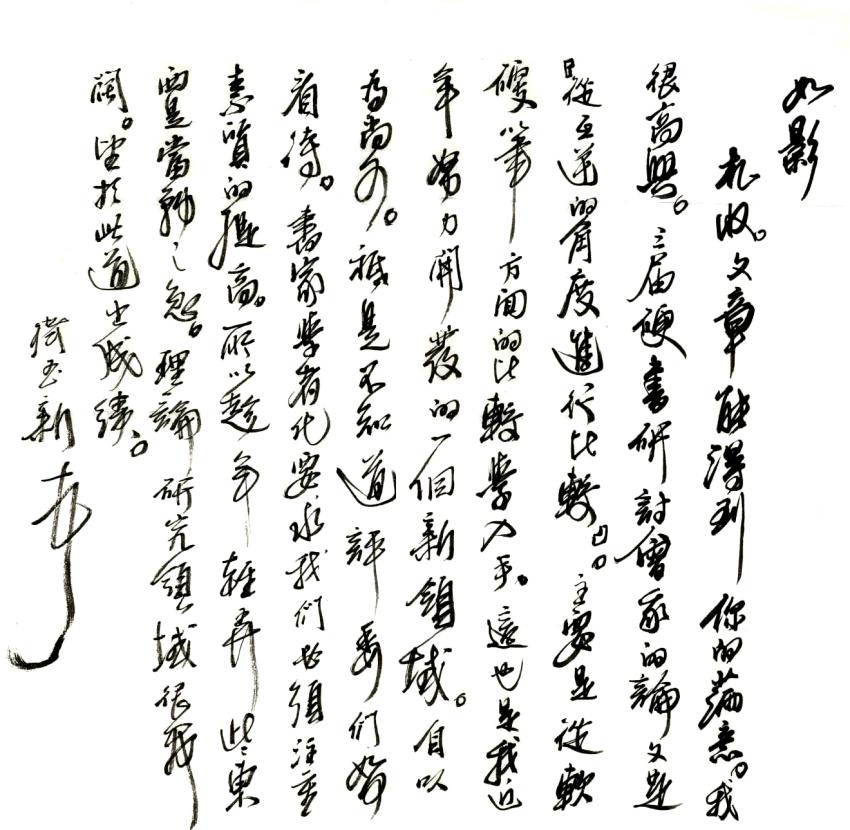 如影
札收。文章能得到你的滿意。我
很高興。三届硬書研討會我的論文是
從互逆的角度進行比較。主要是從軟
硬筆方面的比較學入手。這也是我近
年努力開發的一個新領域。自以
爲尚可。祇是不知道評委們如何
看待。書家學者化要求我們必須注重
素質的提高。所以趁年輕弄些東
西是當務之急。理論研究領域很
闊。望於此道出成績。
新